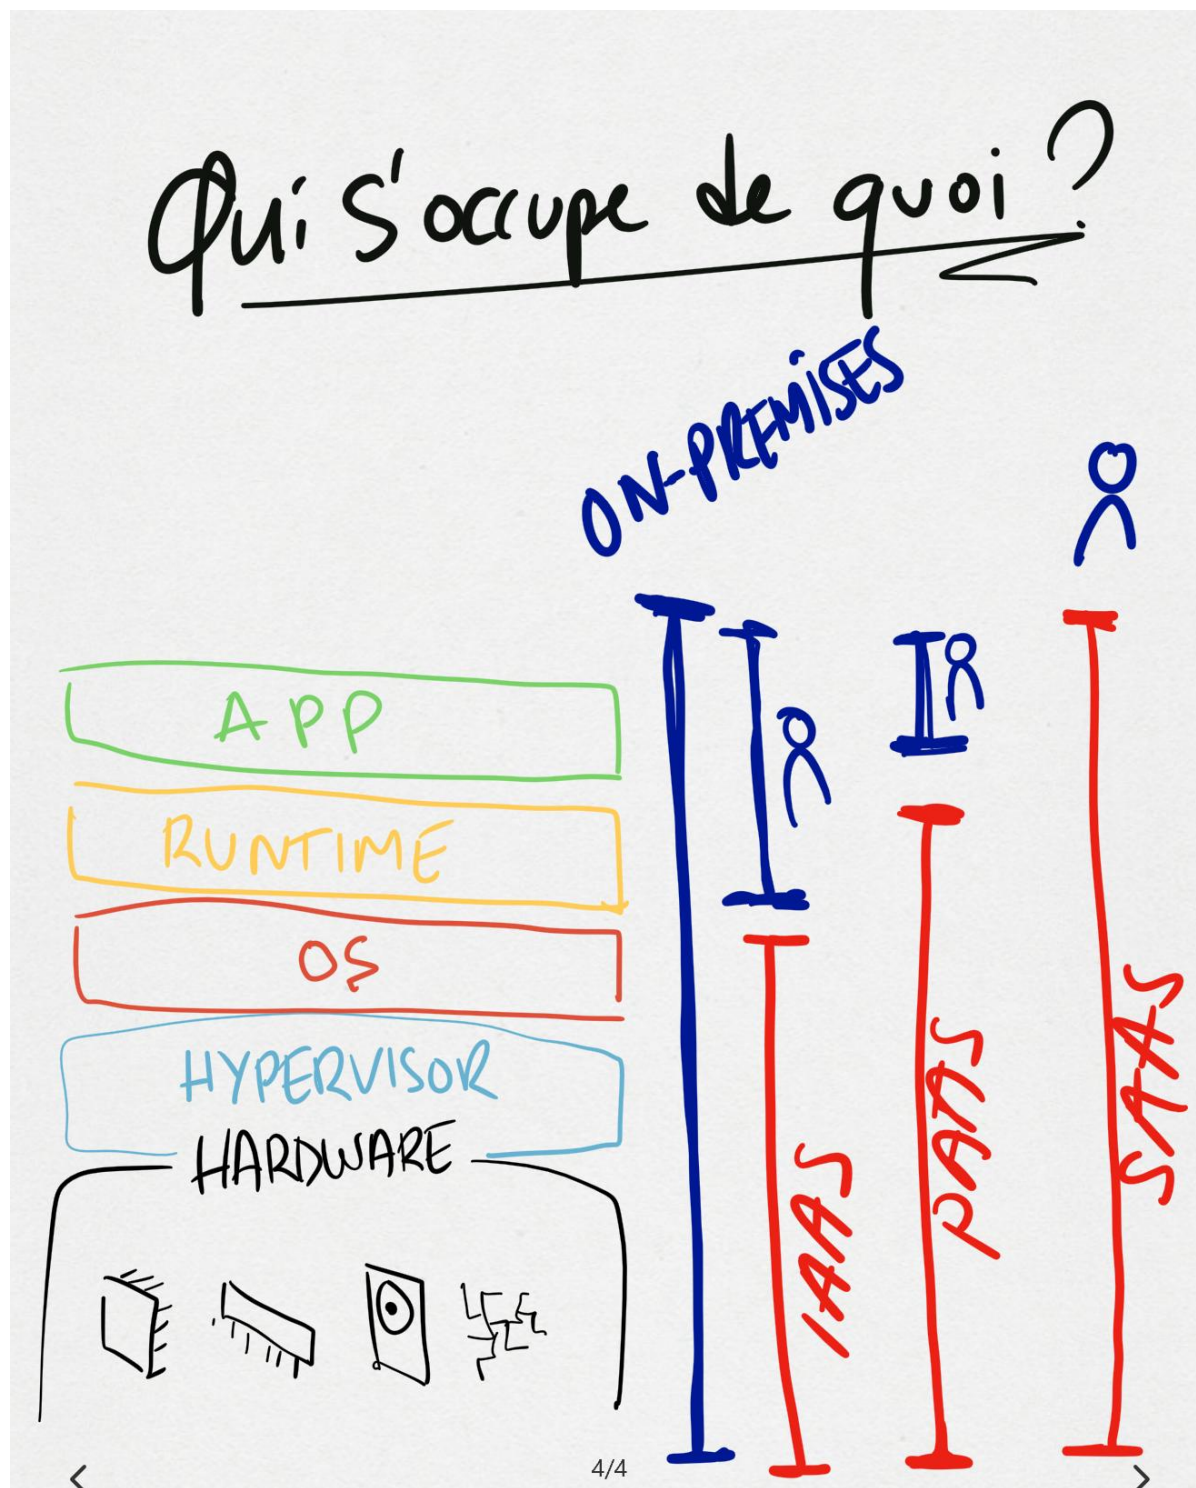 Qui s'occupe de quoi ?
ON-PREMISES
APP
RUNTIME
OS
HYPERVISOR
HARDWARE
IAAS
PAAS
SAAS
4/4